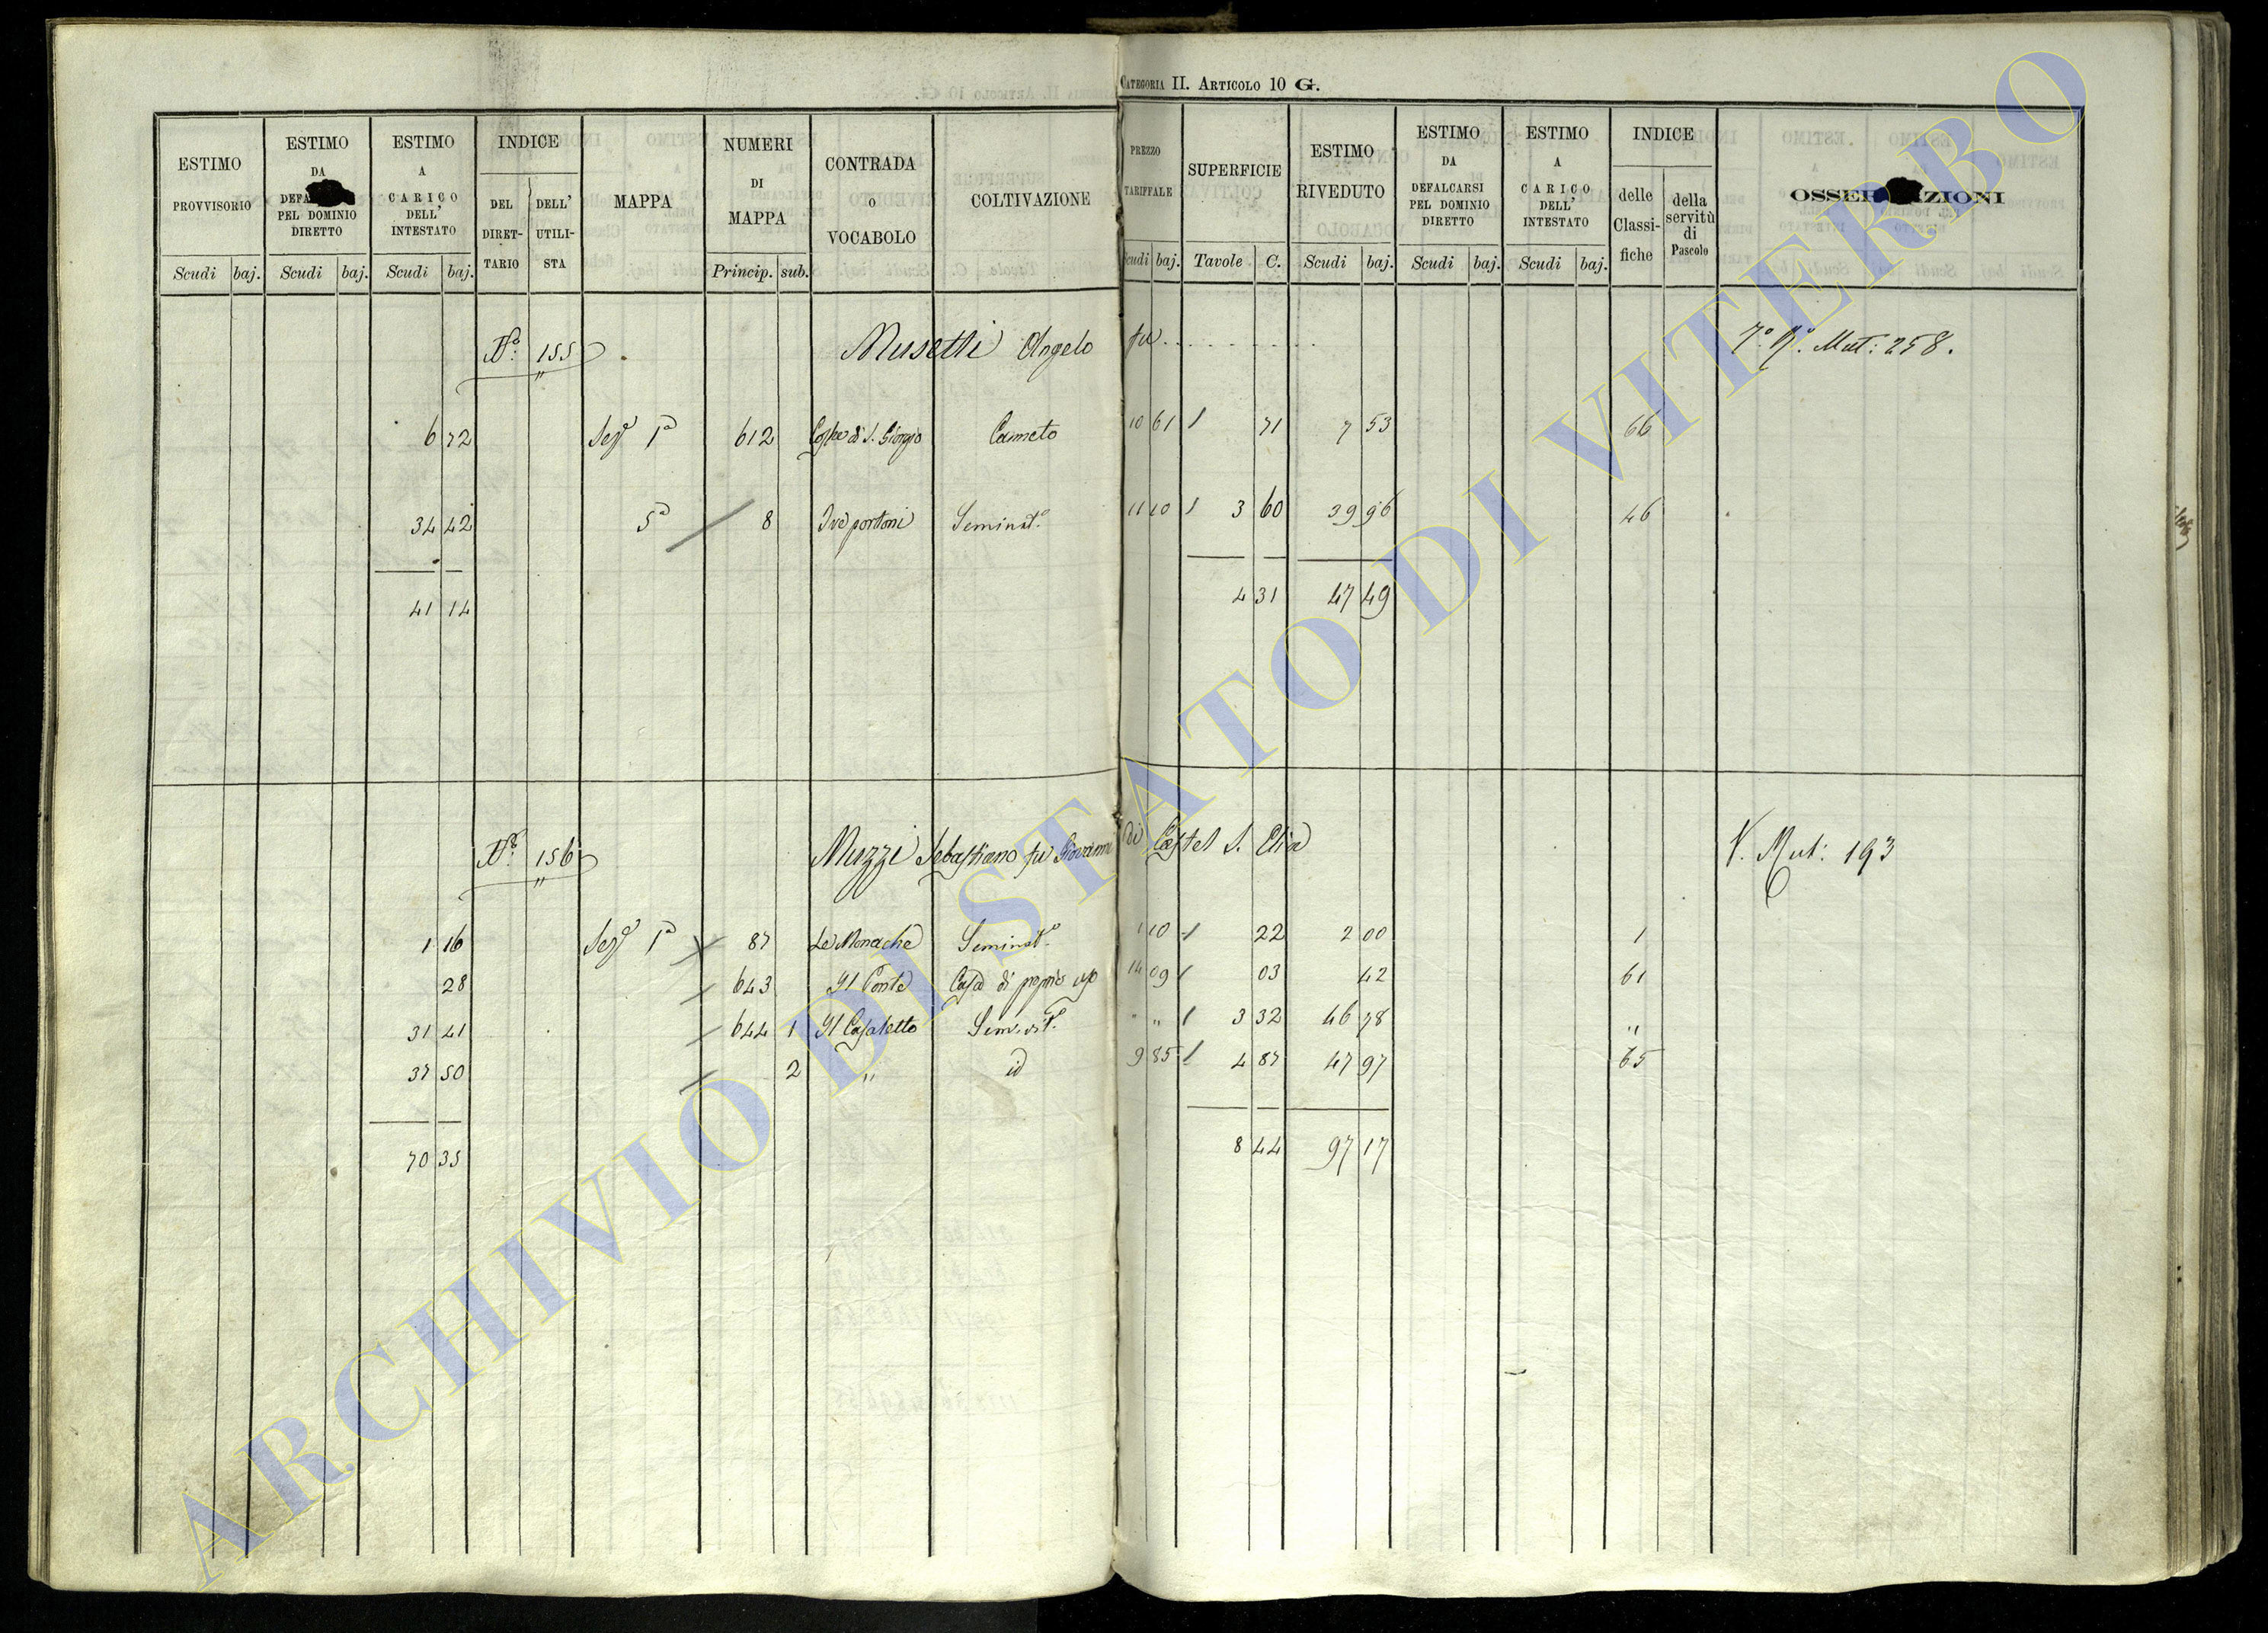 CATEGORIA II. ARTICOLO 10 G.
ESTIMO PROVVISORIO Scudi baj.
ESTIMO DA DEFA PEL DOMINIO DIRETTO Scudi baj.
ESTIMO A CARICO DELL' INTESTATO Scudi baj.
INDICE DEL DIRET-TARIO DELL' UTILI-STA
MAPPA
NUMERI DI MAPPA Princip. sub.
CONTRADA O VOCABOLO
COLTIVAZIONE
PREZZO TARIFFALE Scudi baj.
SUPERFICIE Tavole C.
ESTIMO RIVEDUTO Scudi baj.
ESTIMO DA DEFALCARSI PEL DOMINIO DIRETTO Scudi baj.
ESTIMO A CARICO DELL' INTESTATO Scudi baj.
INDICE delle Classi-fiche della servitù di Pascolo
OSSER ZIONI
N.º 155 Musetti Angelo fu . . . . . . . . Mut: 258.
6 72 Sezº 1ª 612 Coste di S. Giorgio Canneto 10 61 / 71 7 53 66
34 42 5ª 8 Due portoni Seminatº 11 10 / 3 60 39 96 46
41 14 4 31 47 49
N.º 156 Muzzi Sebastiano fu Giovanni di Castel S. Elia V. Mut: 193
1 16 Sezº 1ª 87 Le Monache Seminatº 22 2 00 1
28 643 Il Conte Casa di proprio uso 14 09 / 03 42 61
31 41 644 1 Il Casaletto Sem. vitº " " / 3 32 46 78 "
37 50 2 " id 9 85 / 4 87 47 97 65
70 35 8 44 97 17
ARCHIVIO DI STATO DI VITERBO